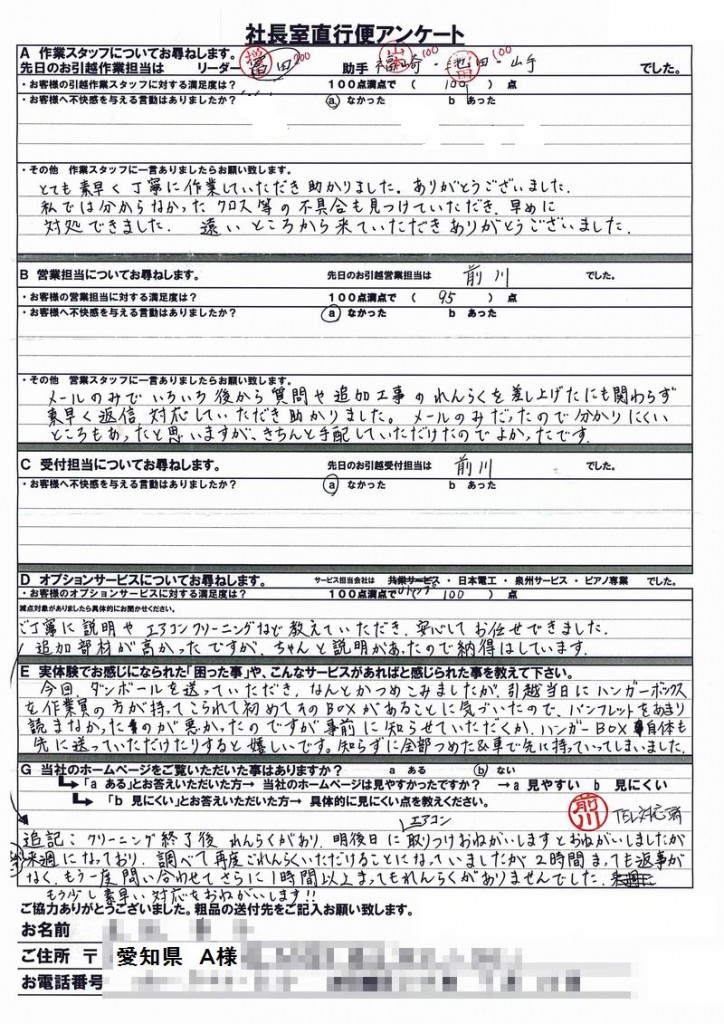 社長室直行便アンケート
A 作業スタッフについてお尋ねします。
先日のお引越作業担当は リーダー 冨田 200 助手 福崎 100・池田 100・山手 でした。
・お客様の引越作業スタッフに対する満足度は? 100点満点で ( 100 ) 点
・お客様へ不快感を与える言動はありましたか? a なかった b あった
・その他 作業スタッフに一言ありましたらお願い致します。
とても素早く丁寧に作業していただき助かりました。ありがとうございました。
私では分からなかった クロス等の不具合も見つけていただき、早めに
対処できました。 遠いところから来ていただきありがとうございました。
B 営業担当についてお尋ねします。 先日のお引越営業担当は 前川 でした。
・お客様の営業担当に対する満足度は? 100点満点で ( 95 ) 点
・お客様へ不快感を与える言動はありましたか? a なかった b あった
・その他 営業スタッフに一言ありましたらお願い致します。
メールのみで いろいろ 後から質問や追加工事のれんらくを差し上げたにも関わらず
素早く返信、対応していただき助かりました。メールのみだったので分かりにくい
ところもあったと思いますが、きちんと手配していただけたのでよかったです。
C 受付担当についてお尋ねします。 先日のお引越受付担当は 前川 でした。
・お客様へ不快感を与える言動はありましたか? a なかった b あった
D オプションサービスについてお尋ねします。 サービス担当会社は 共栄サービス ・ 日本電工 ・ 泉州サービス ・ ピアノ専業 でした。
・お客様のオプションサービスに対する満足度は? 100点満点で ( 100 ) 点
減点対象がありましたら具体的にお聞かせください。
ご丁寧に説明や エアコンクリーニングなど教えていただき、安心してお任せできました。
追加部材が高かったですが、ちゃんと説明があったので納得はしています。
E 実体験でお感じになられた「困った事」や、こんなサービスがあればと感じられた事を教えて下さい。
今回、ダンボールを送っていただき、なんとかつめこみましたが、引越当日にハンガーボックス
を作業員の方が持ってこられて初めてそのBOXがあることに気づいたので、パンフレットをあまり
読まなかったのが悪かったのですが事前に知らせていただくか、ハンガーBOX自体も
先に送っていただけたりすると嬉しいです。知らずに全部つめた&車で先に持っていってしまいました。
G 当社のホームページをご覧いただいた事はありますか? a ある b ない
「a ある」とお答えいただいた方→ 当社のホームページは見やすかったですか? →a 見やすい b 見にくい
「b 見にくい」とお答えいただいた方→ 具体的に見にくい点を教えください。
前川 TEL対応済
追記: クリーニング終了後 れんらくがあり、明後日にエアコン取りつけおねがいしますとおねがいしましたが
来週になっており、調べて再度ごれんらくいただけることになっていましたが2時間まっても返事が
なく、もう一度問い合わせてさらに1時間以上まってもれんらくがありませんでした。
もう少し素早い対応をおねがいします!!
ご協力ありがとうございました。粗品の送付先をご記入お願い致します。
お名前
ご住所 〒 愛知県 A様
お電話番号